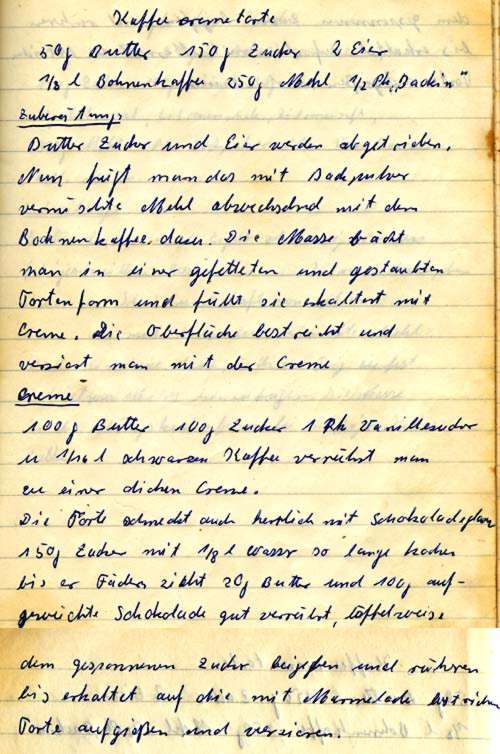 Kaffeecremetorte
50g Butter 150g Zucker 2 Eier
1/8 l Bohnenkaffee 250g Mehl 1/2 Pk. „Backin"
Zubereitung:
Butter Zucker und Eier werden abgetrieben.
Nun fügt man das mit Backpulver
vermischte Mehl abwechselnd mit dem
Bohnenkaffee dazu. Die Masse bäckt
man in einer gefetteten und gestaubten
Tortenform und füllt sie erkaltert mit
Creme. Die Oberfläche bestreicht und
verziert man mit der Creme
Creme
100g Butter 100g Zucker 1 Pk Vanillezucker
u 1/16 l schwarzen Kaffee verrührt man
zu einer dicken Creme.
Die Torte schmeckt auch herrlich mit Schokoladeglanz
150g Zucker mit 1/8 l Wasser so lange kochen
bis er Fäden zieht 20g Butter und 100g auf-
geweichte Schokolade gut verrührt, löffelweise
dem gesponnenen Zucker beigeben und rühren
bis erkaltet auf die mit Marmelade bestrichene
Torte aufgießen und verzieren.